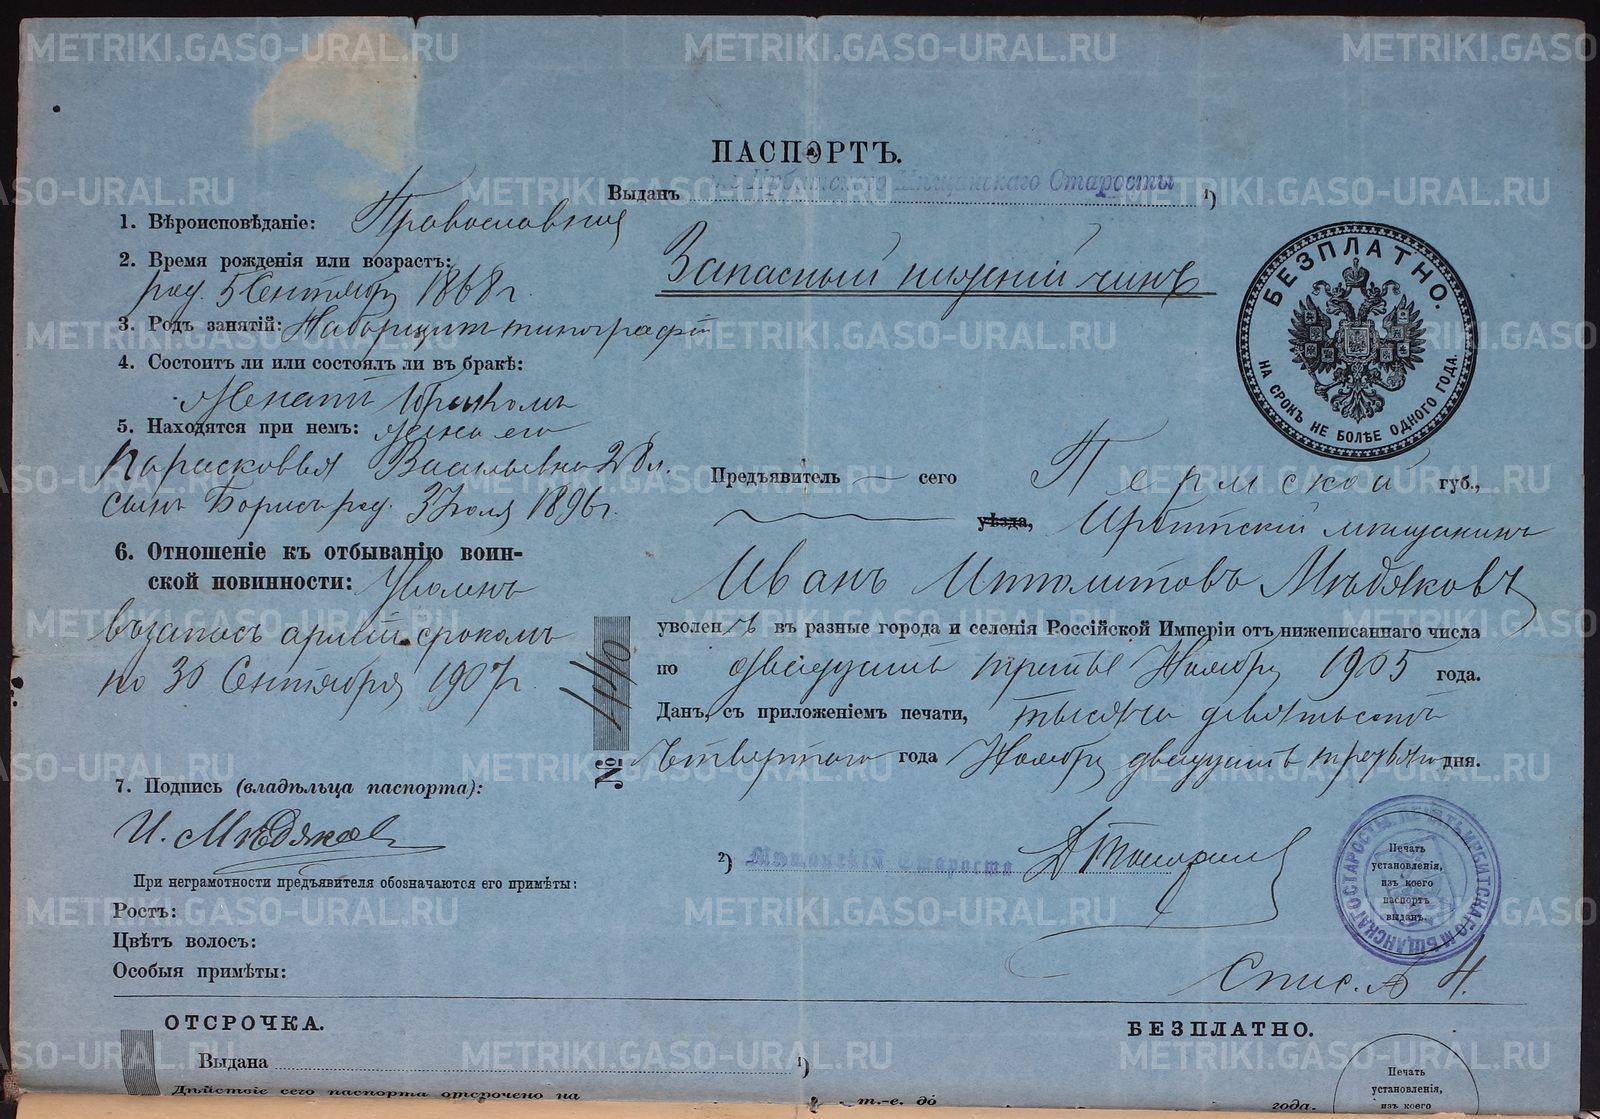 ПАСПОРТЪ.
Выданъ Ирбитскаго Мѣщанскаго Старосты ¹)
1. Вѣроисповѣданіе: Православный
2. Время рожденія или возрастъ:
род. 5 Сентября 1868 г.
3. Родъ занятій: Наборщикъ типографіи
4. Состоитъ ли или состоялъ ли въ бракѣ:
Женатъ
5. Находятся при немъ: жена его
Парасковья Васильевна 28 л.
сынъ Борисъ род. 3 Іюля 1896 г.
6. Отношеніе къ отбыванію воин-
ской повинности: Уволенъ
въ запасъ арміи срокомъ
по 30 Сентября 1907 г.
7. Подпись (владѣльца паспорта):
И. Мѣдяковъ
При неграмотности предъявителя обозначаются его примѣты:
Ростъ:
Цвѣтъ волосъ:
Особыя примѣты:
Запасный нижній чинъ
БЕЗПЛАТНО.
НА СРОКЪ НЕ БОЛѢЕ ОДНОГО ГОДА.
Предъявитель сего Пермской губ.,
уѣзда, Ирбитскій мѣщанинъ
Иванъ Ипполитовъ Мѣдяковъ
уволенъ въ разные города и селенія Россійской Имперіи отъ нижеписаннаго числа
по двадцать третье Ноября 1905 года.
Данъ, съ приложеніемъ печати, тысяча девятьсотъ
четвертаго года Ноября двадцать третьяго дня.
№
2) Мѣщанскій Староста
ПЕЧАТЬ ИРБИТСКАГО МѢЩАНСКАГО СТАРОСТЫ
Печать
установленія,
изъ коего
паспортъ
выданъ.
Спис. № 4.
ОТСРОЧКА.
БЕЗПЛАТНО.
Выдана ¹)
Дѣйствіе сего паспорта отсрочено на
т.-е. до
года.
Печать
установленія,
изъ коего
METRIKI.GASO-URAL.RU